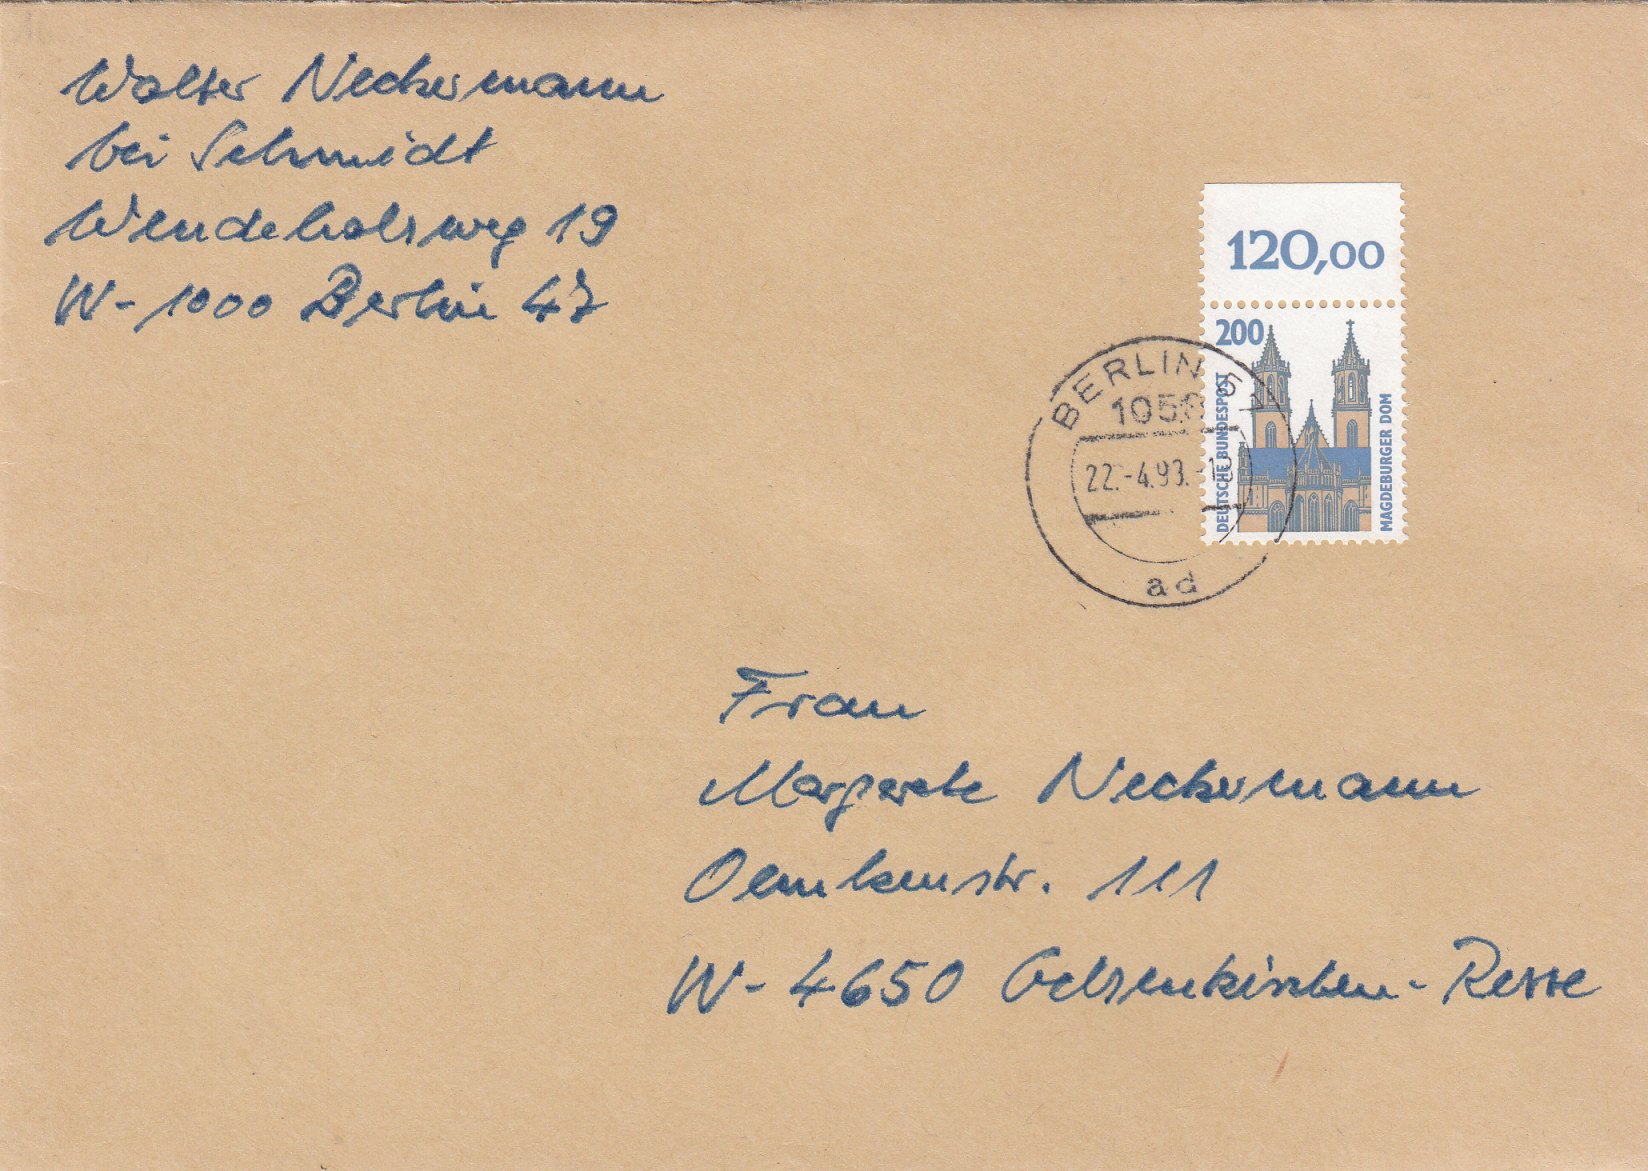 Walter Neckermann
bei Schmidt
Wendehalsweg 19
W-1000 Berlin 47
120,00
200
DEUTSCHE BUNDESPOST
MAGDEBURGER DOM
BERLIN 51
22.-4.93.
ad
Frau
Margerete Neckermann
Oemkenstr. 111
W-4650 Gelsenkirchen-Resse